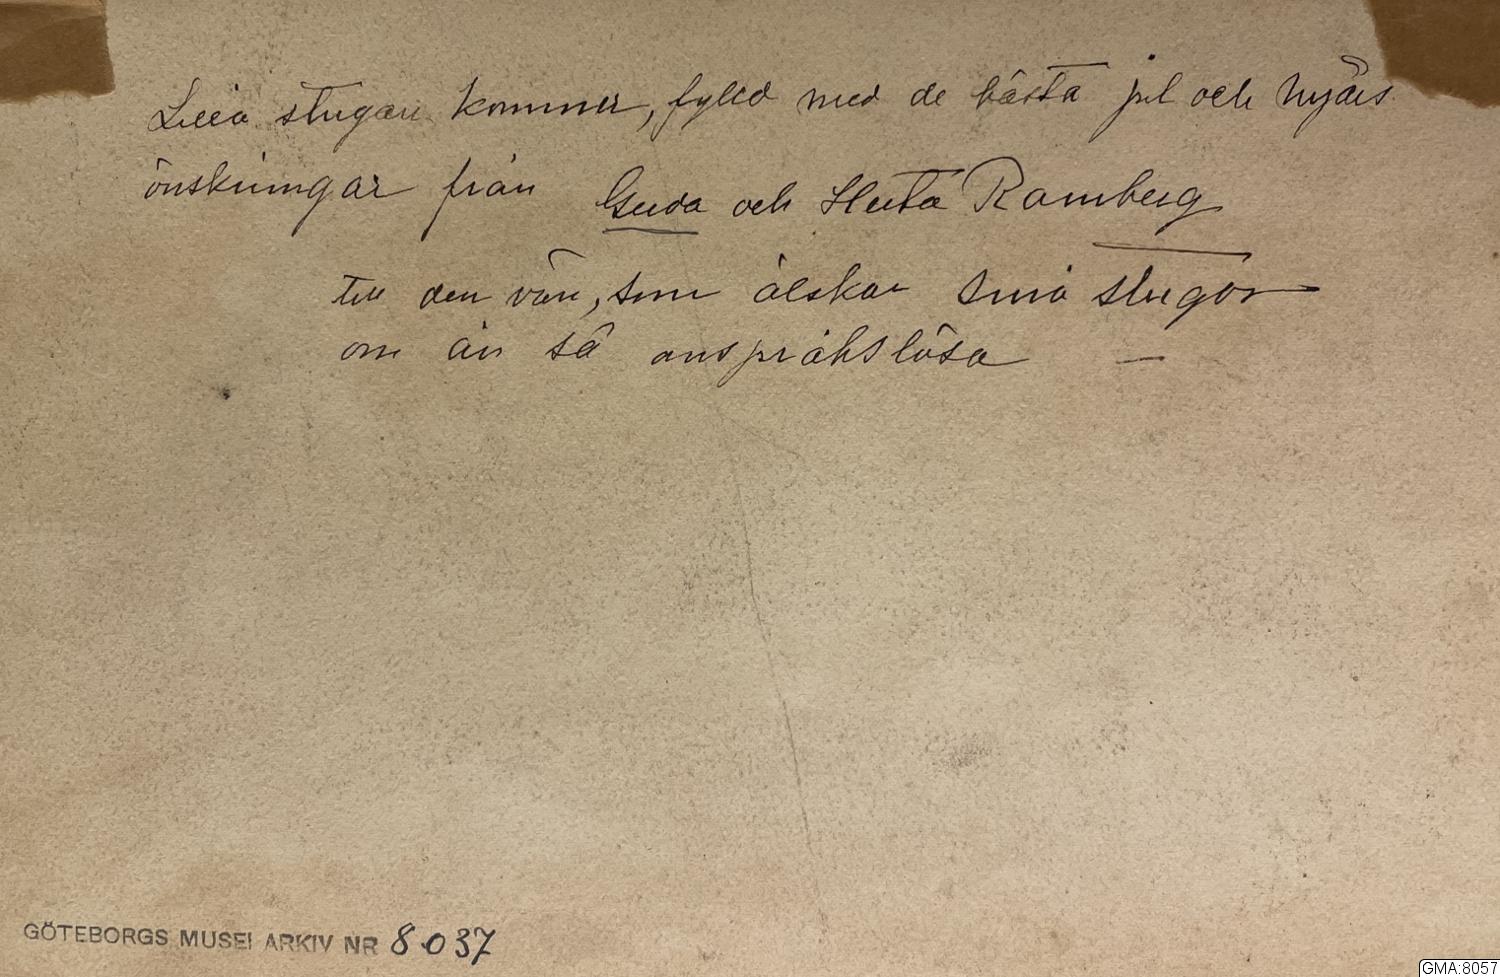 Lilla stugan kommer, fylld med de bästa jul och nyårs
önskningar från Gerda och Huta Ramberg
till den vän, som älskar små stugor
om än så anspråkslösa —
GÖTEBORGS MUSEI ARKIV NR 8037
GMA:8057